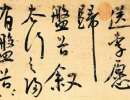 送李愿
歸
盤谷叙
太行之陽
有盤谷